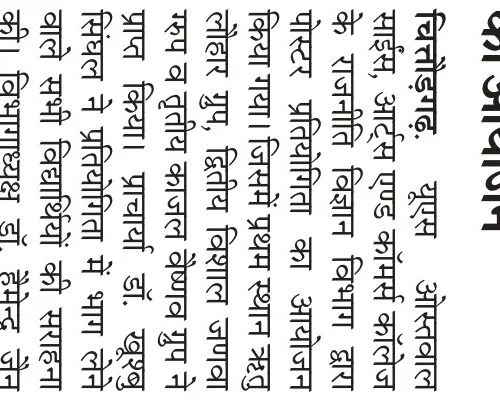 का आयोजन
चित्तौड़गढ़. यूएस ओस्तवाल
साइंस, आर्ट्स एण्ड कॉमर्स कॉलेज
के राजनीति विज्ञान विभाग द्वारा
पोस्टर प्रतियोगिता का आयोजन
किया गया। जिसमें प्रथम स्थान ऋतु
लौहार ग्रुप, द्वितीय विशाल जणवा
रूप व तृतीय काजल वैष्णव ग्रुप ने
प्राप्त किया। प्राचार्या डॉ. खुशबु
सिंघल ने प्रतियोगिता में भाग लेने
वाले सभी विद्यार्थियों की सराहना
की। विभागाध्यक्ष डॉ. हेमेन्द्र जैन